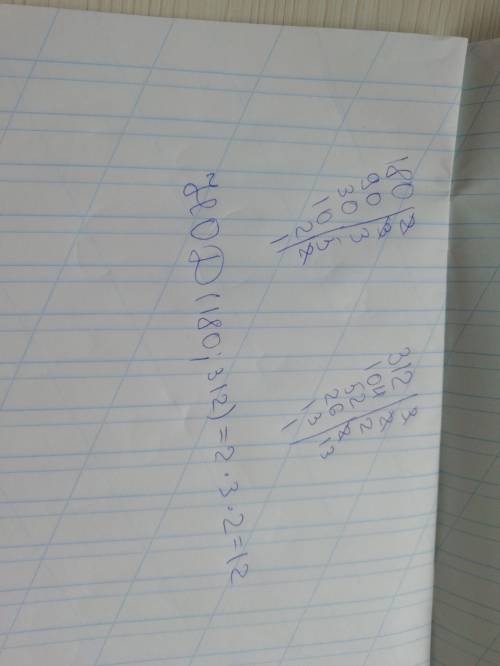 180 2
90 3
30 3
10 5
2 2
1
312 3
104 2
52 2
26 2
13 13
1
НОД (180; 312) = 2 · 3 · 2 = 12